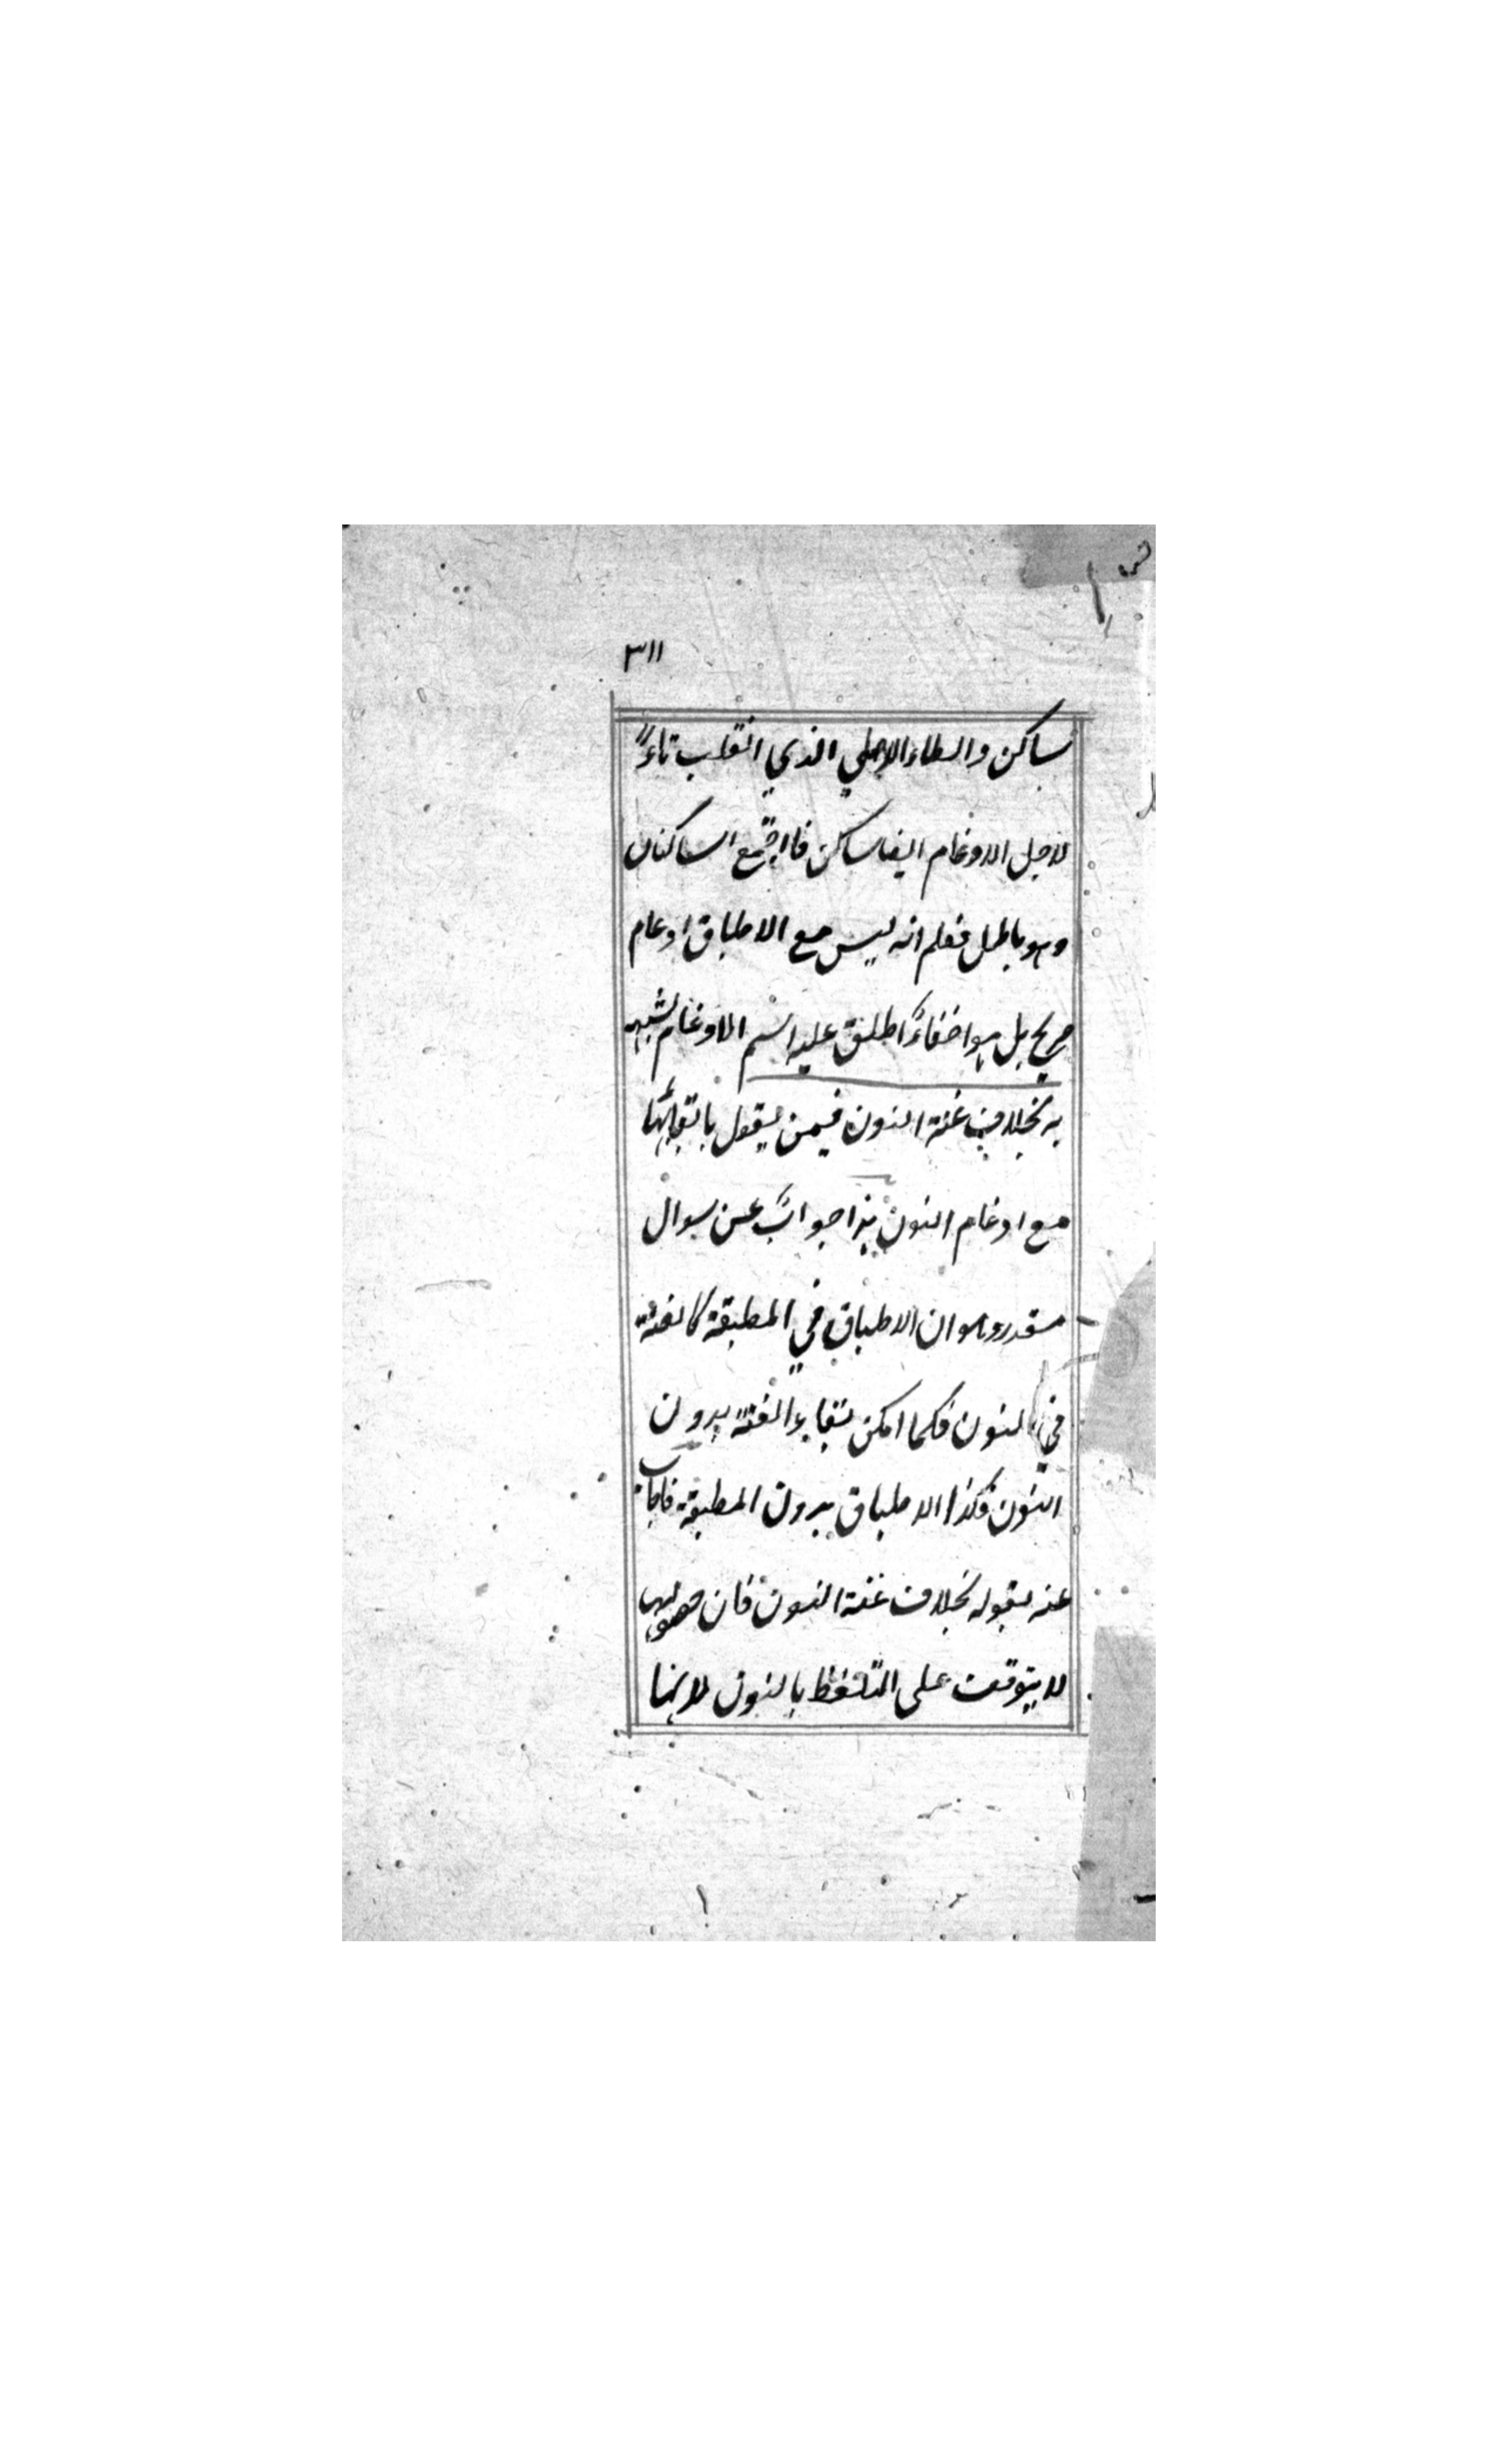 ٣١١
ساكن والطاء الاصلي الذي انقلب تاءً
لاجل الادغام ايضا ساكن فاجتمع الساكنان
وهو باطل فعلم انه ليس مع الاطباق ادغام
صريح بل هو اخفاءً اطلق عليه اسم الادغام لشبهه
به بخلاف غنة النون فيمن يقول بابقائها
مع ادغام النون هذا جوابٌ عن سوال
مقدر وهو ان الاطباق في المطبقة كالغنة
في النون فكما امكن بقاء الغنة بدون
النون فكذا الاطباق بدون المطبقة فاجاب
عنه بقوله بخلاف غنة النون فان حصولها
لا يتوقف على التلفظ بالنون لانها